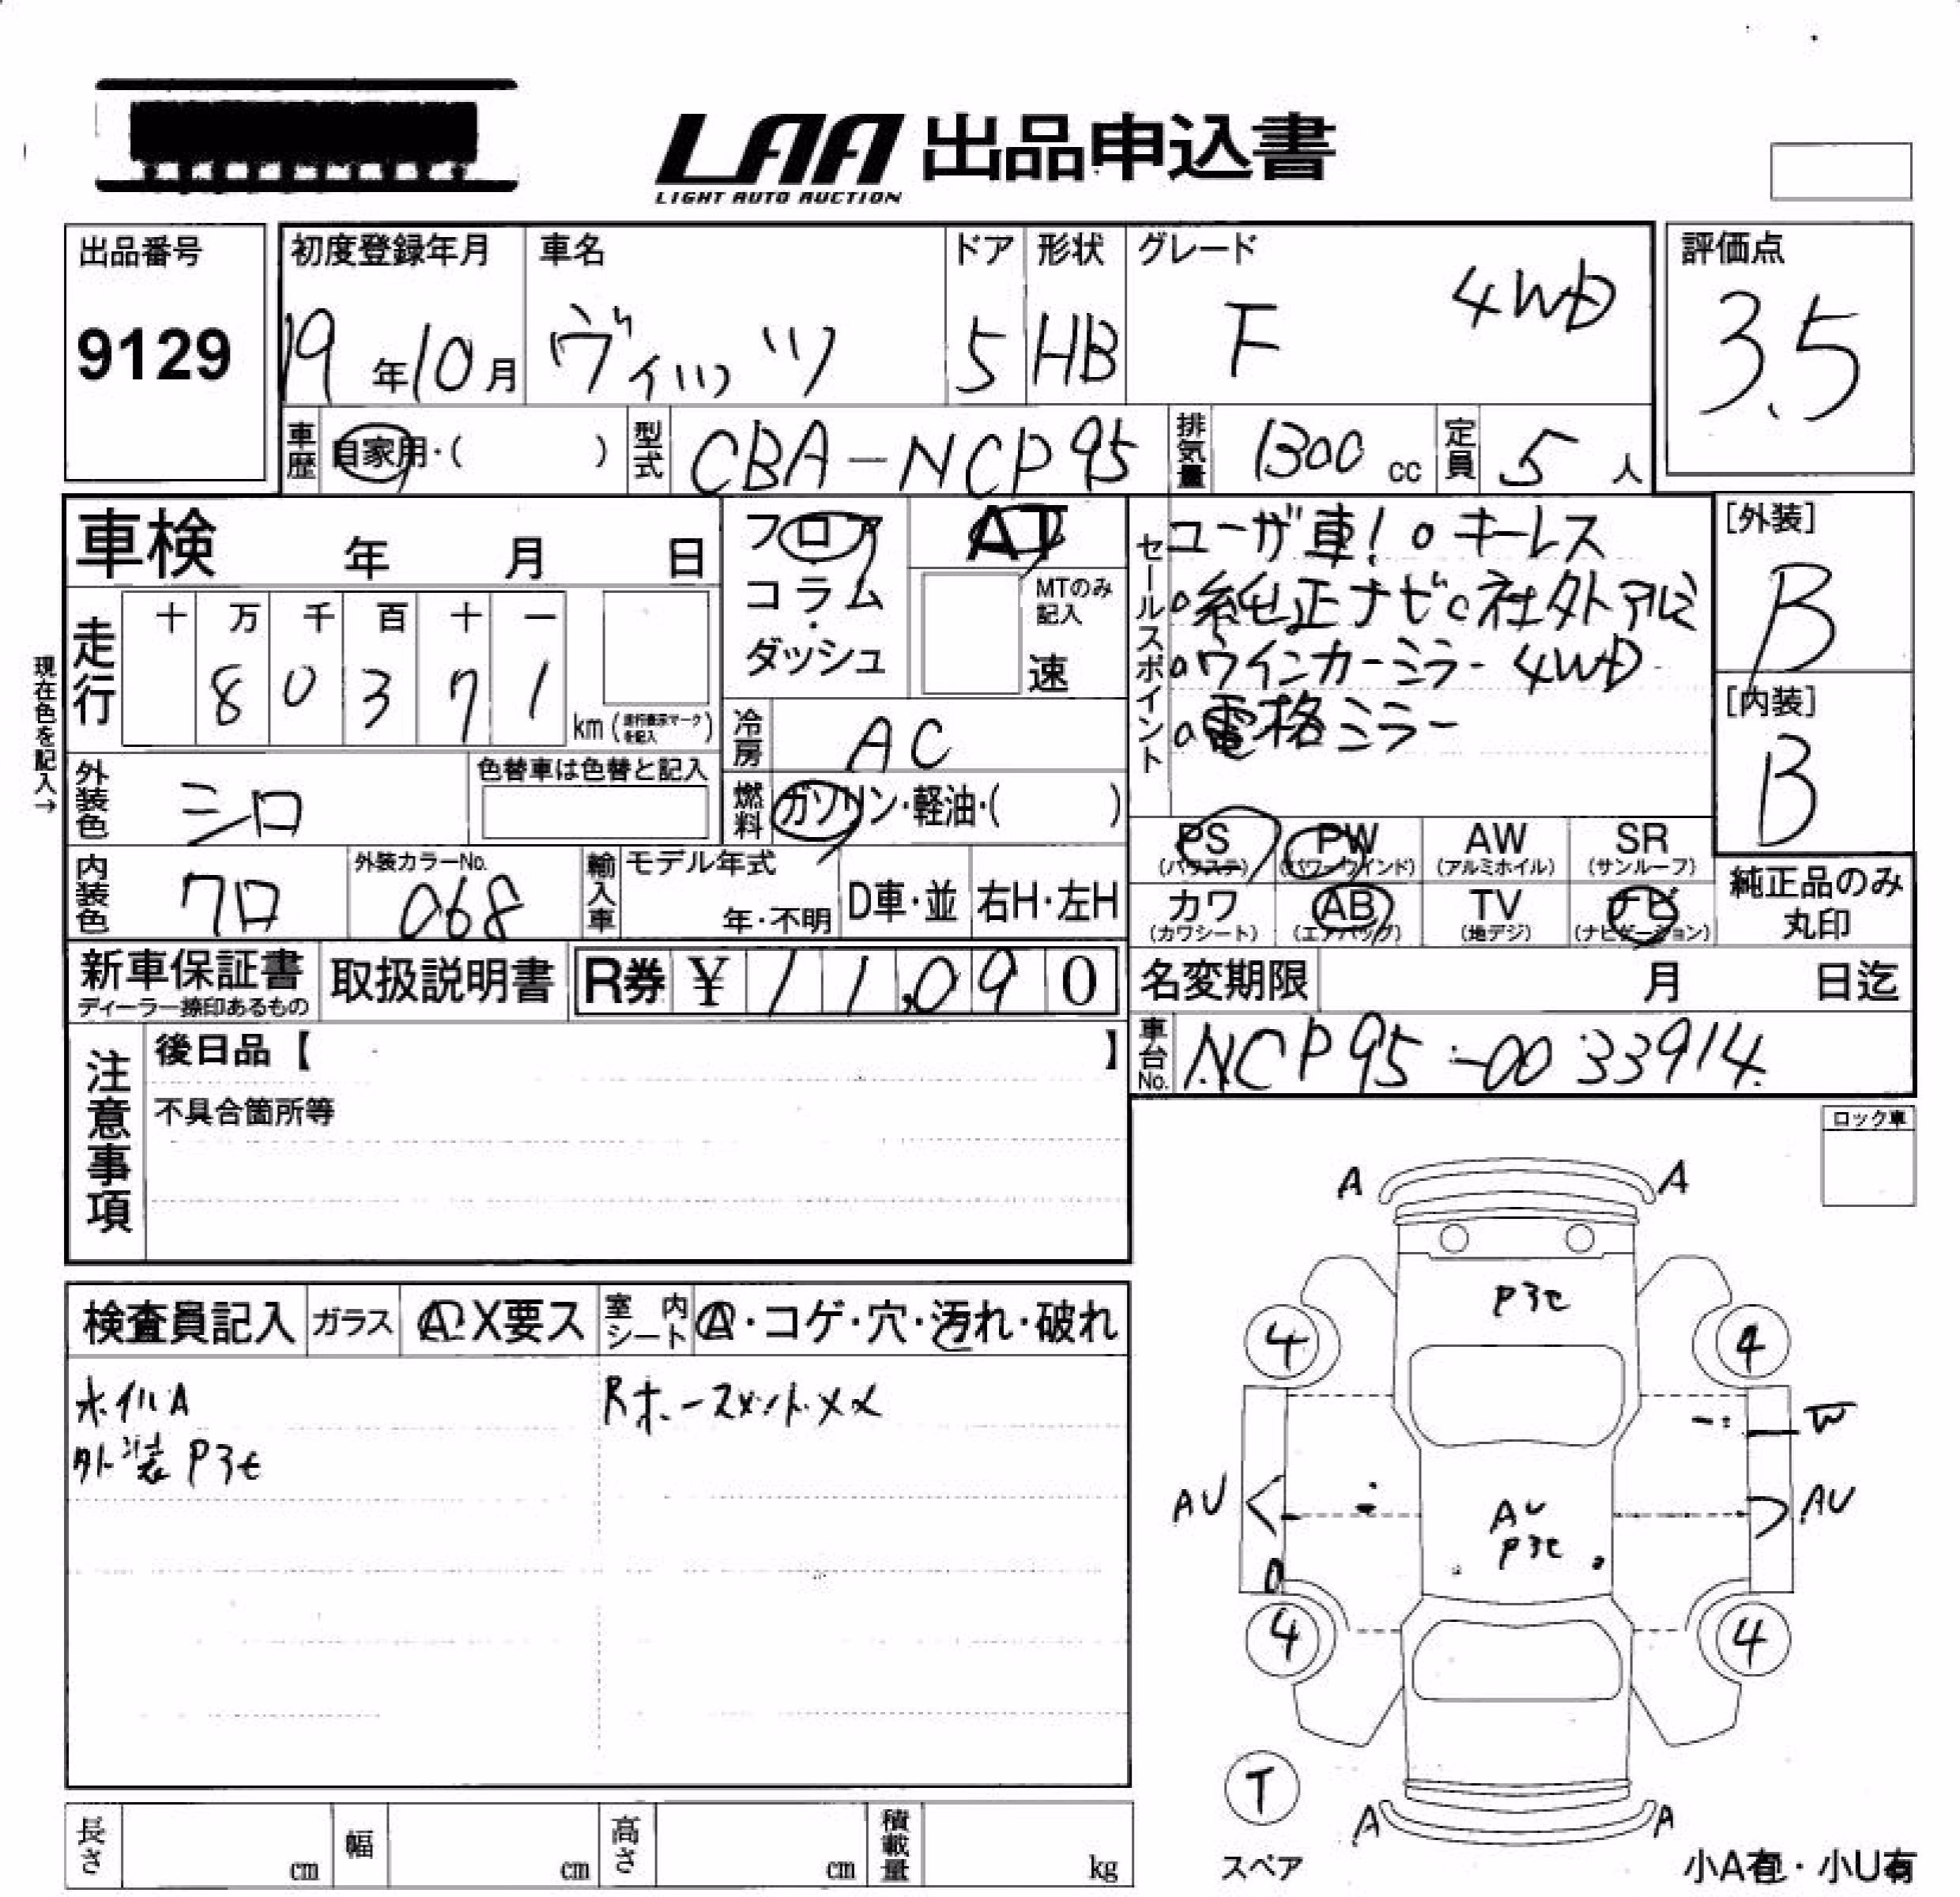 LAA 出品申込書
LIGHT AUTO AUCTION
出品番号
9129
初度登録年月
19年10月
車名
ヴィッツ
ドア
5
形状
HB
グレード
F 4WD
評価点
3.5
車歴
自家用・( )
型式
CBA-NCP95
排気量
1300 cc
定員
5 人
車検 年 月 日
走行
十 万 千 百 十 一
8 0 3 7 1
km (走行表示マークを記入)
現在色を記入→
外装色
シロ
色替車は色替と記入
内装色
クロ
外装カラーNo.
068
輸入車
モデル年式
年・不明
D車・並
右H・左H
フロア
コラム
・
ダッシュ
AT
MTのみ
記入
速
冷房
AC
燃料
ガソリン・軽油・( )
セールスポイント
ユーザ車! o キーレス
o純正ナビo社外アルミ
oウインカーミラー 4WD
o電格ミラー
[外装]
B
[内装]
B
PS
(パワステ)
PW
(パワーウインド)
AW
(アルミホイル)
SR
(サンルーフ)
カワ
(カワシート)
AB
(エアバッグ)
TV
(地デジ)
ナビ
(ナビゲーション)
純正品のみ
丸印
新車保証書
ディーラー捺印あるもの
取扱説明書
R券 ¥ 11,090
名変期限 月 日迄
車台No.
NCP95-0033914
注意事項
後日品【 】
不具合箇所等
ロック車
検査員記入
ガラス
A・X要ス
室内シート
A・コゲ・穴・汚れ・破れ
ホイルA
外装 P3t
Rホースメントメメ
A A
P3t
4 4
W
AU AU
AU
P3t
4 4
T
スペア
A A
小A有・小U有
長さ cm
幅 cm
高さ cm
積載量 kg